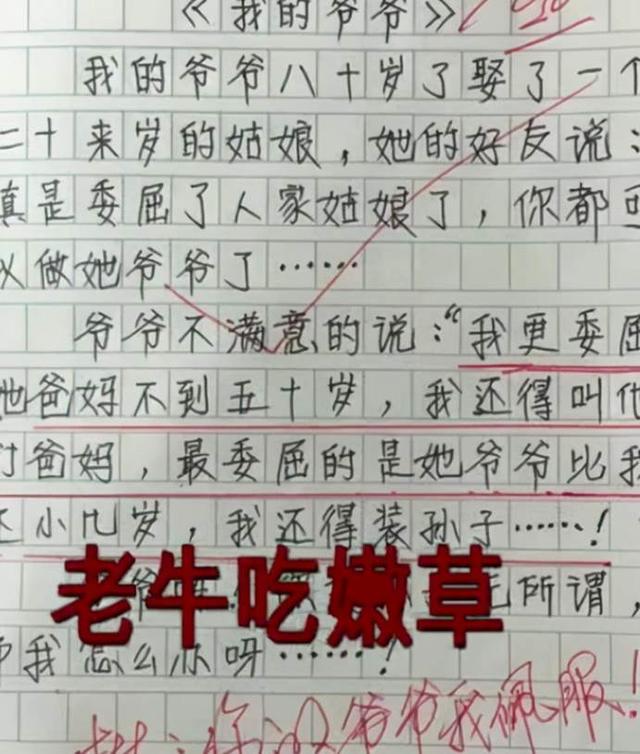 《我的爷爷》
我的爷爷八十岁了娶了一个
二十来岁的姑娘，她的好友说：
真是委屈了人家姑娘了，你都可
以做她爷爷了……
爷爷不满意的说："我更委屈
她爸妈不到五十岁，我还得叫他
们爸妈，最委屈的是她爷爷比我
还小几岁，我还得装孙子……！
老牛吃嫩草
无所谓，
我怎么办呀……！
爷爷我佩服！